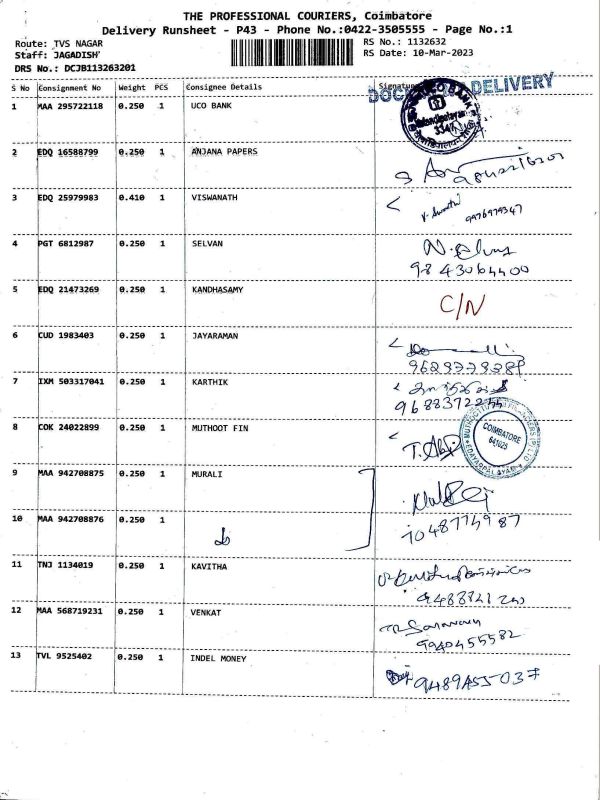 THE PROFESSIONAL COURIERS, Coimbatore
Delivery Runsheet - P43 - Phone No.:0422-3505555 - Page No.:1
Route: TVS NAGAR RS No.: 1132632
Staff: JAGADISH RS Date: 10-Mar-2023
DRS No.: DCJB113263201
S No Consignment No Weight PCS Consignee Details Signature
DELIVERY
1 MAA 295722118 0.250 1 UCO BANK
2 EDQ 16588799 0.250 1 ANJANA PAPERS
3 EDQ 25979983 0.410 1 VISWANATH
9976979347
4 PGT 6812987 0.250 1 SELVAN
9843064400
5 EDQ 21473269 0.250 1 KANDHASAMY C/N
6 CUD 1983403 0.250 1 JAYARAMAN
7 IXM 503317041 0.250 1 KARTHIK
8 COK 24022899 0.250 1 MUTHOOT FIN
COIMBATORE
641025
EDAYARPALAYAM
9 MAA 942708875 0.250 1 MURALI
10 MAA 942708876 0.250 1
11 TNJ 1134019 0.250 1 KAVITHA
12 MAA 568719231 0.250 1 VENKAT
9940455582
13 TVL 9525402 0.250 1 INDEL MONEY
9489455037